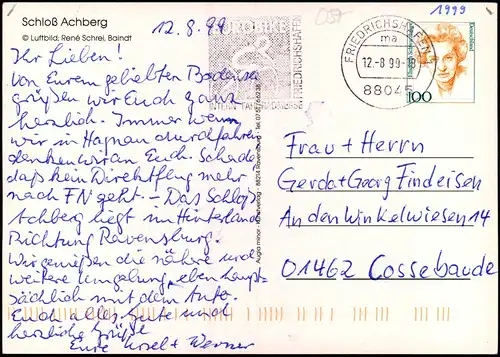 Schloß Achberg
© Luftbild: René Schrei, Baindt
12.8.99
Ihr Lieben!
Von Eurem geliebten Bodensee
grüßen wir Euch ganz
herzlich. Immer wenn
wir in Hagnau durchfahren
denken wir an Euch. Schade
daß kein Direktflug mehr
nach FN geht. – Das Schloß
Achberg liegt im Hinterland
Richtung Ravensburg.
Wir genießen die nähere und
weitere Umgebung, eben haupt-
sächlich mit dem Auto.
Euch alles Gute und
herzliche Grüße
Eure Ursel + Werner
EUROBIKE
FRIEDRICHSHAFEN
INTERN. FAHRRADMESSE
FRIEDRICHSHAFEN
ma
12.-8.99-18
88045
1999
Deutschland
100
Frau + Herrn
Gerda + Georg Findeisen
An den Winkelwiesen 14
01462 Cossebaude